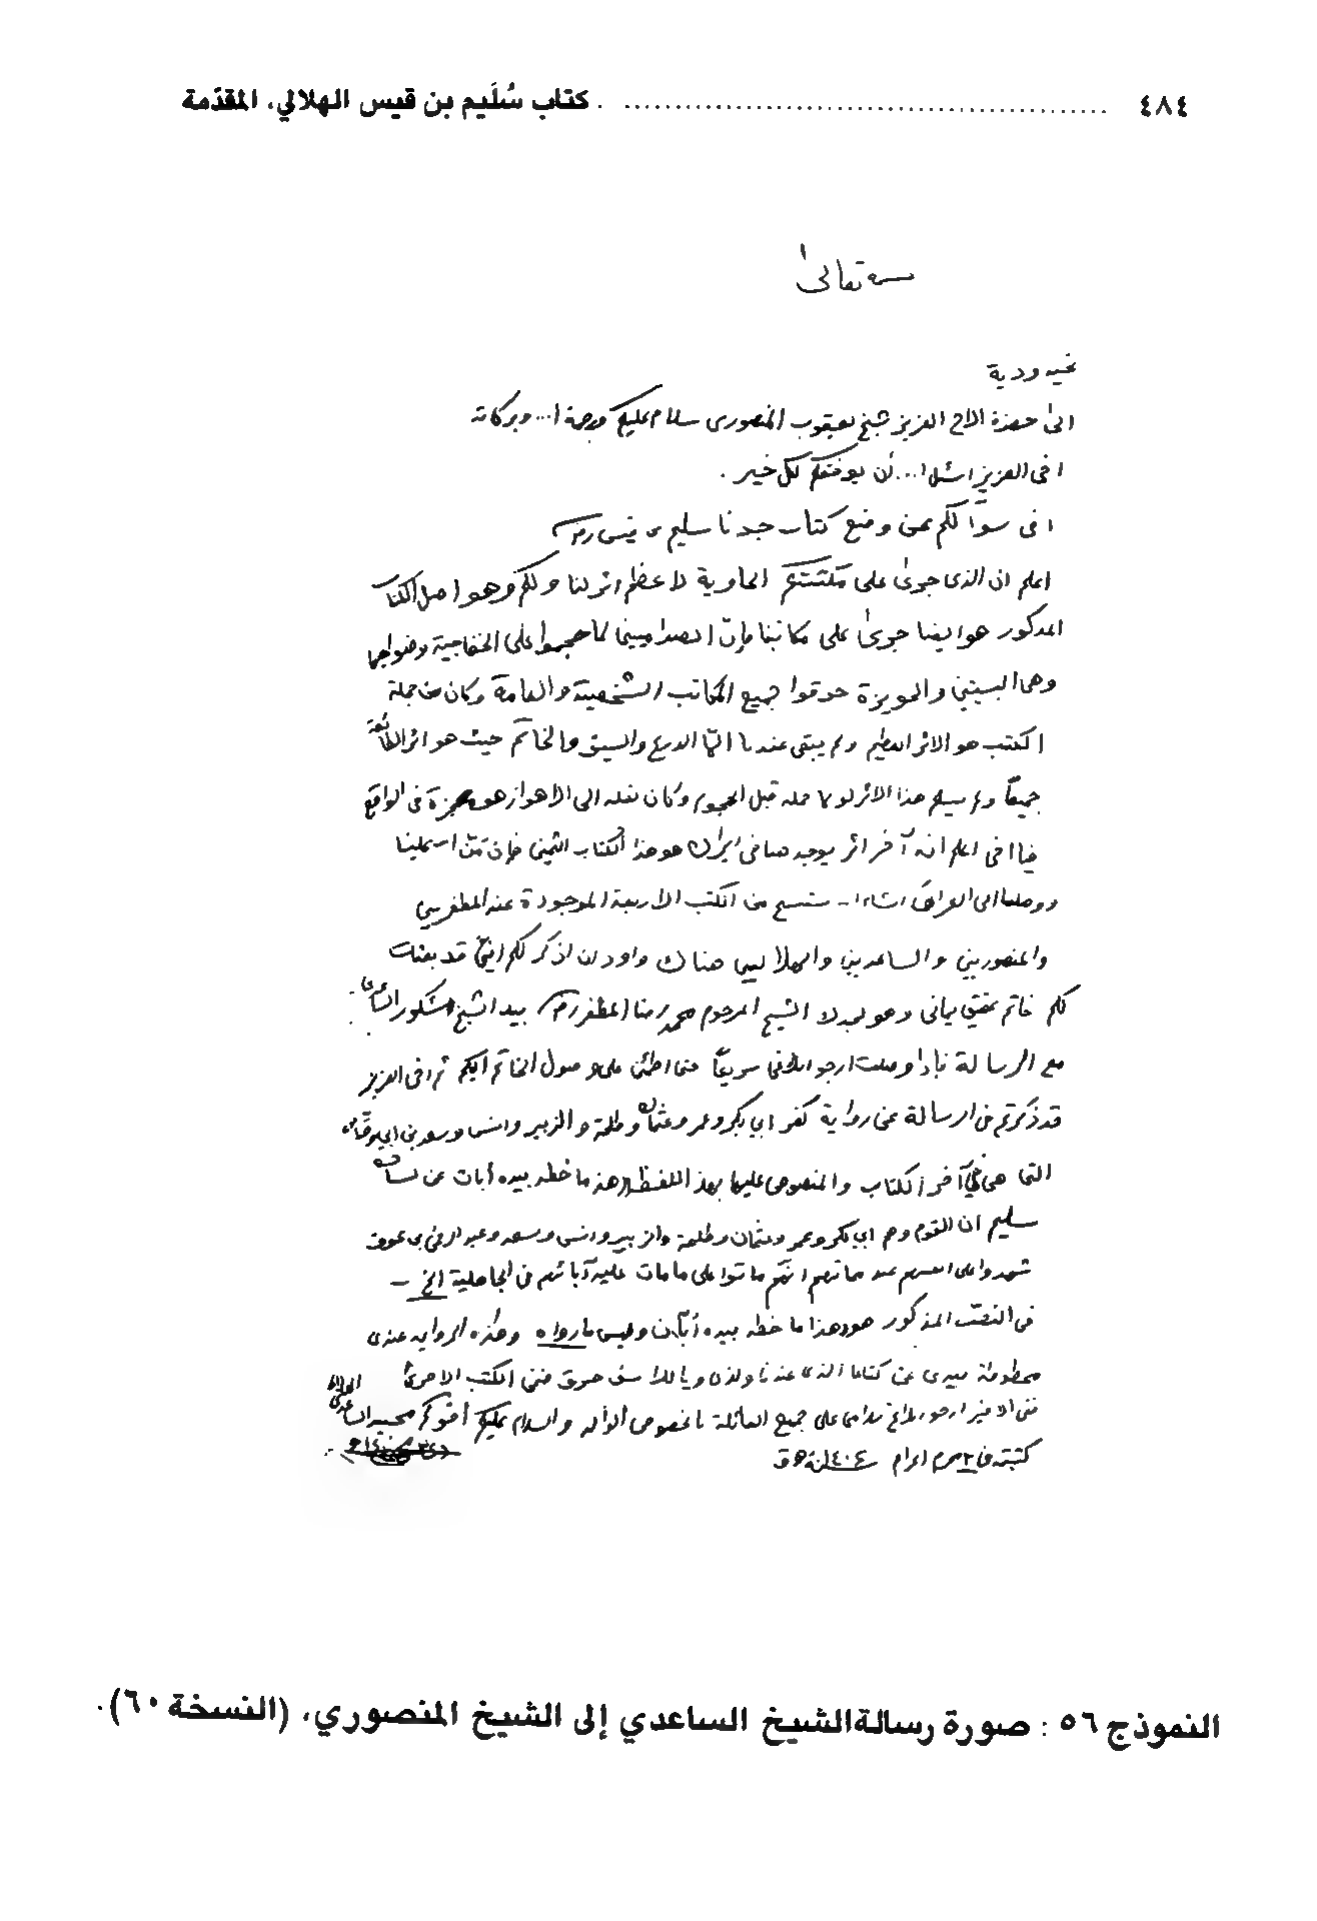 ٤٨٤ ........................................ . كتاب سُلَيم بن قيس الهلالي، المقدّمة
بسمه تعالى
تحيه ودية
الى حضرة الاخ العزيز شيخ يعقوب المنصورى سلام عليكم ورحمة ا... وبركاته
اخى العزيز اسئل ا... أن يوفقكم لكل خير .
اخى سوآلكم عن وضع كتاب جدنا سليم بن قيس رض
اعلم ان الذى جرىٰ على مكتبتكم الحاوية لاعظم اثر لنا ولكم وهو اصل الكتاب
المذكور هو ايضا جرىٰ على مكاتبنا فإنّ الصداميين لما هجموا على الخفاجية وضواحيها
وهما البسيتين والحويزة حرقوا جميع المكاتب الشخصية والعامة وكان من جملة
الكتب هو الاثر العظيم ولم يبقى عندنا الّا الدرع والسيف والخاتم حيث هو اثر الطائفة
جميعاً ولم يسلم هذا الاثر لولا حمله قبل الهجوم وكان نقله الى الاهواز هو معجزة فى الواقع
فيا اخى اعلم انه آخر اثر يوجد هنا فى ايران هو هذا الكتاب الثمين فإن منّ ا... علينا
ووصلنا الى العراق انشاء ا... ننسخ من الكتب الاربعة الموجودة عند المظفريين
والمنصوريين والساعديين والهلاليين هناك واود ان اذكر لكم اننى قد بعثت
لكم خاتم عقيق يمانى وهو لجدك الشيخ المرحوم محمد رضا المظفر رض بيد الشيخ شكور الساعدى
مع الرسالة فإذا وصلت ارجو ابلاغى سريعاً حتى اطمئن على وصول الخاتم اليكم ثم اخى العزيز
قد ذكرتم فى الرسالة عن رواية كفر ابى بكر وعمر وعثمان وطلحة والزبير وانس وسعد بن ابى وقاص
التى هى فى آخر الكتاب والمنصوص عليها بهذ اللفظ (هذ ما خطه بيده أبان عن لسان
سليم ان القوم وهم ابى بكر وعمر وعثمان وطلحة والزبير وانس وسعد وعبد الرحمن بن عوف
شهدوا على انفسهم عند مماتهم انهم ماتوا على مامات عليه آبائهم فى الجاهلية الخ -
فى النصّ المذكور هو وهذا ما خطه بيده أبان وليس مارواه وهذه الروايه عندى
مخطوطة بيدى عن كتابنا الذى عندنا ولاكن ويا للاسف حرق ضمن الكتب الاخرىٰ
ففى الاخير ارجو ابلاغ سلامى على جميع العائلة بالخصوص الوالد والسلام عليكم أخوكم محمد الساعدى الهلالى
كتبته فى ٢ محرم الحرام سنة ١٤٠٤ هـ ق
النموذج ٥٦ : صورة رسالة الشيخ الساعدي إلى الشيخ المنصوري، (النسخة ٦٠).